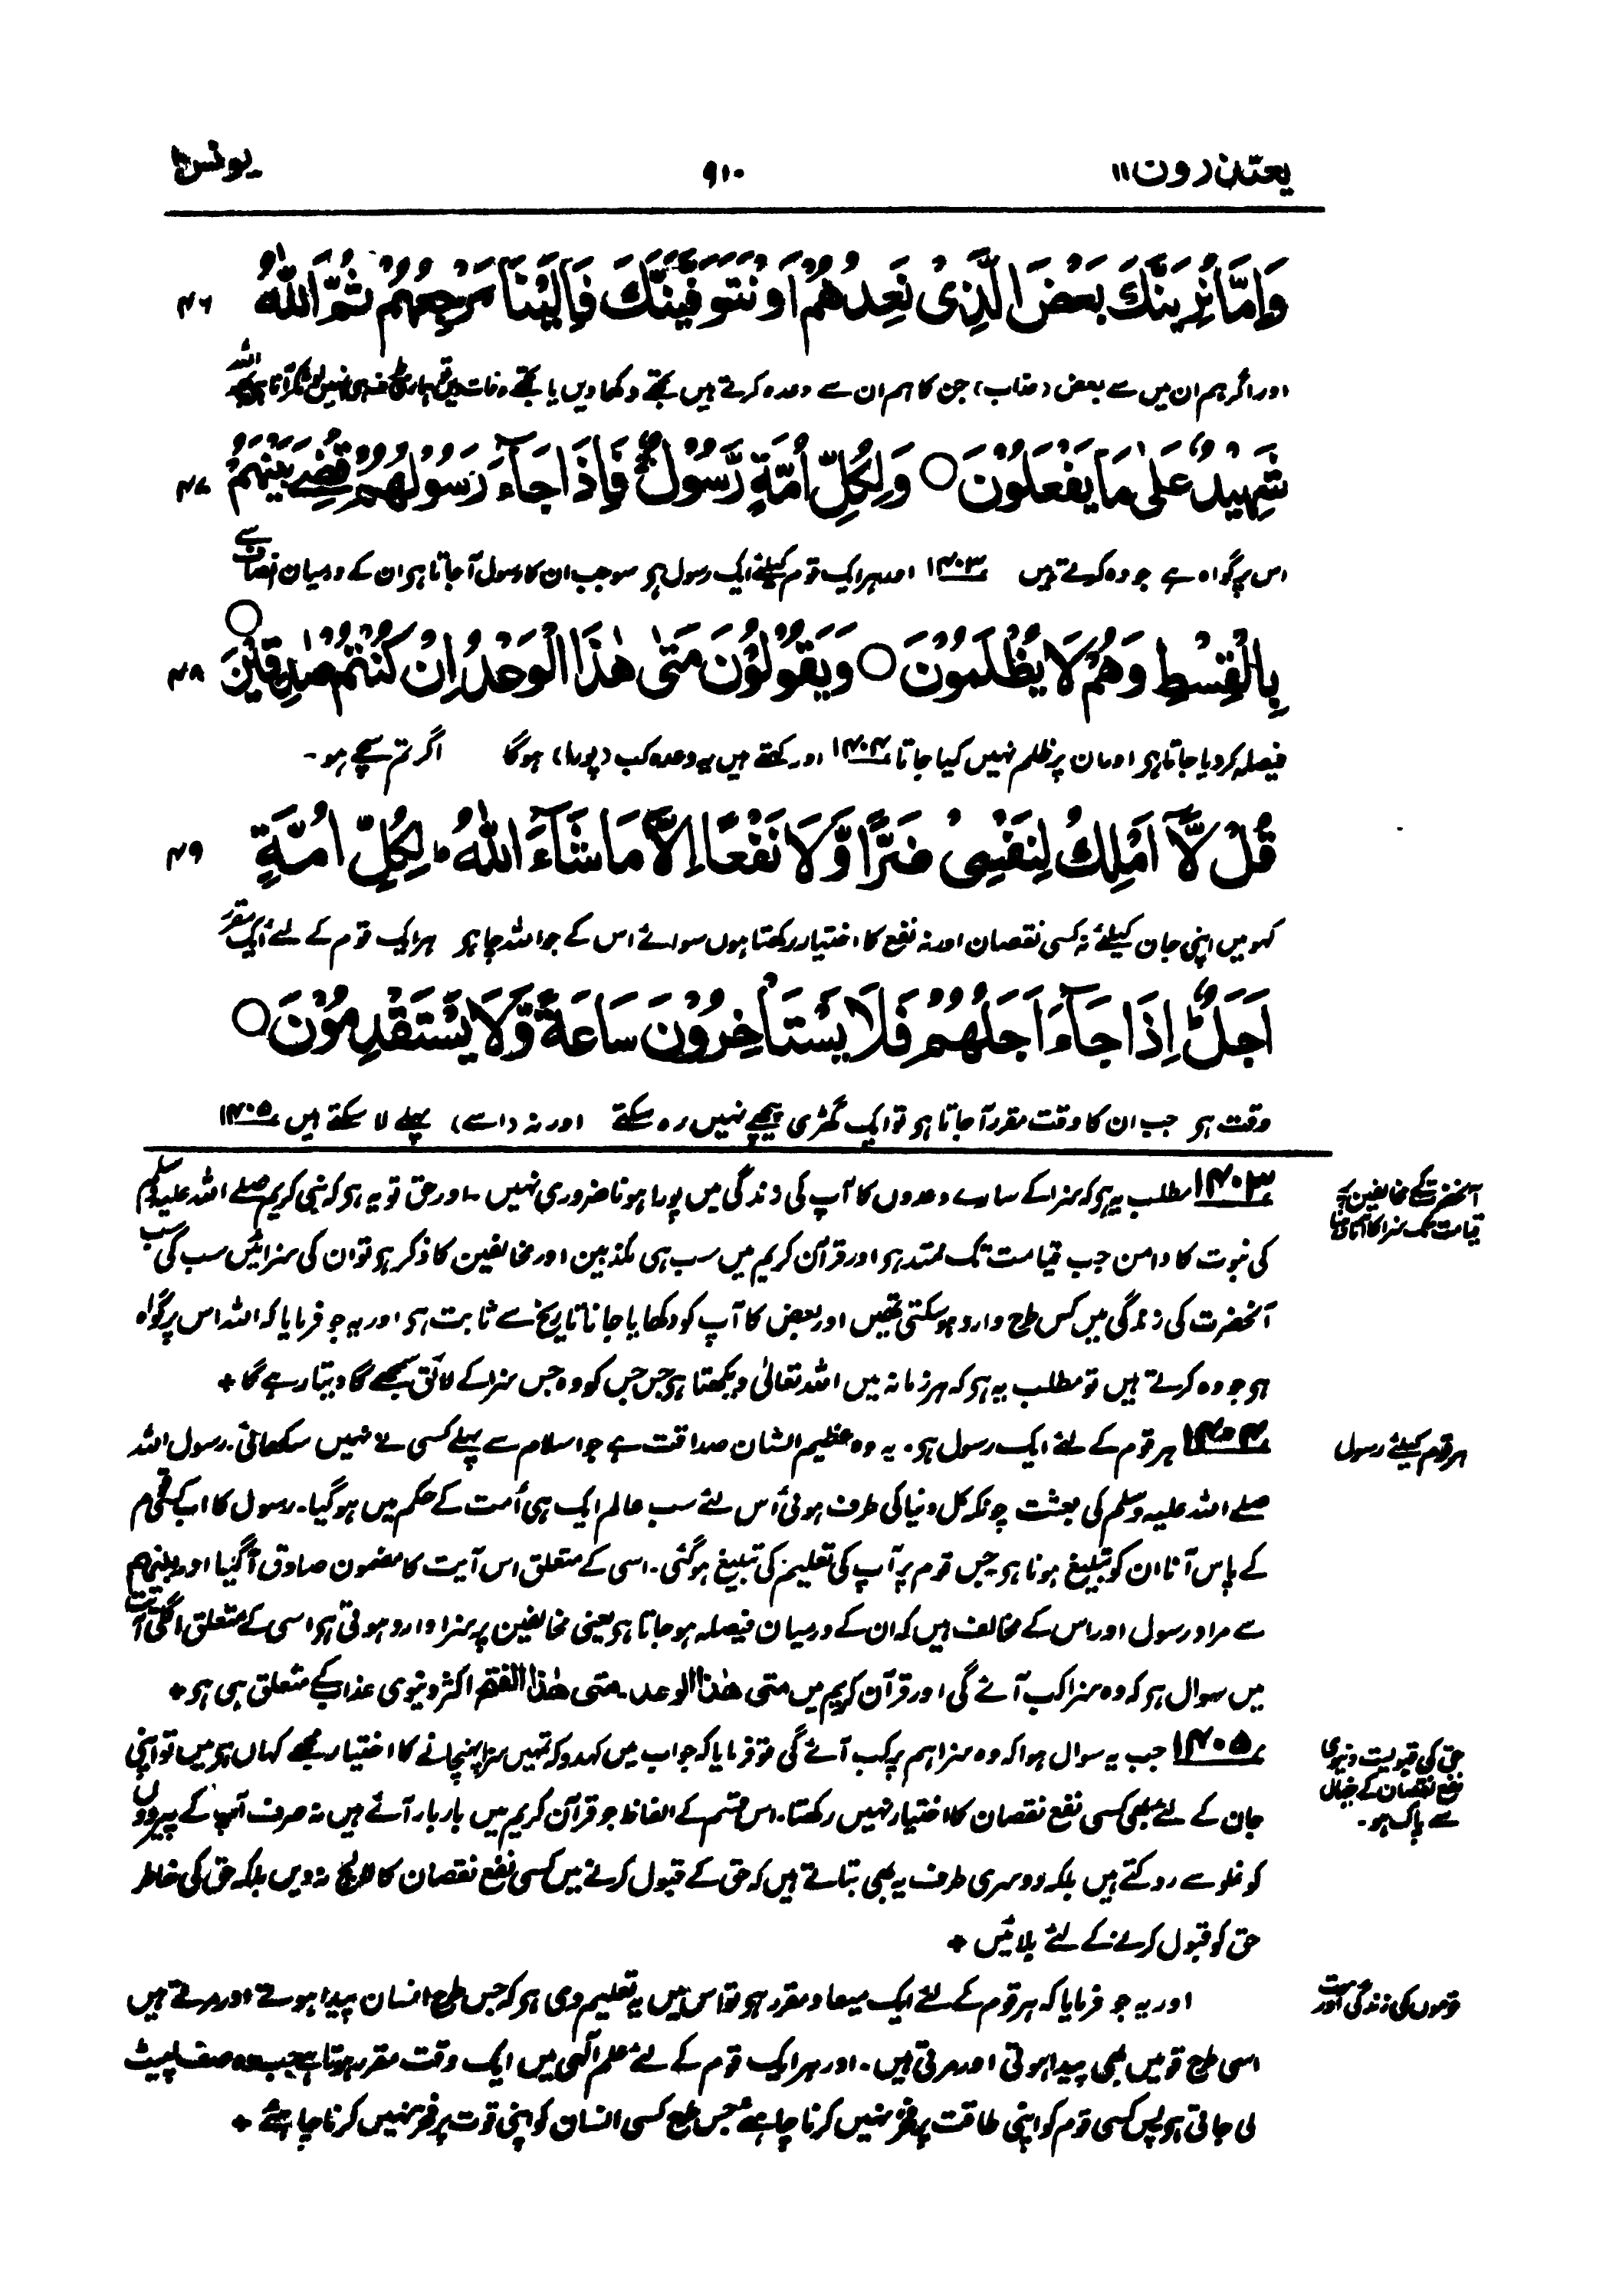 یعتذرون ۱۱
۹۱۰
یونس ۱۰
وَاِمَّا نُرِیَنَّكَ بَعْضَ الَّذِیْ نَعِدُهُمْ اَوْ نَتَوَفَّیَنَّكَ فَاِلَیْنَا مَرْجِعُهُمْ ثُمَّ اللّٰهُ ۴۶
اور اگر ہم ان میں سے بعض (عذاب) جن کا ہم ان سے وعدہ کرتے ہیں تجھے دکھا دیں یا تجھے وفات
شَهِیْدٌ عَلٰی مَا یَفْعَلُوْنَ ○ وَلِكُلِّ اُمَّةٍ رَّسُوْلٌ ۚ فَاِذَا جَآءَ رَسُوْلُهُمْ قُضِیَ بَیْنَهُمْ ۴۷
اس پر گواہ ہے جو وہ کرتے ہیں ۱۴۰۳ اور ہر ایک قوم کیلئے ایک رسول ہی سو جب ان کا رسول آجاتا ہی ان کے درمیان انصاف سے
بِالْقِسْطِ وَهُمْ لَا یُظْلَمُوْنَ ○ وَیَقُوْلُوْنَ مَتٰی هٰذَا الْوَعْدُ اِنْ كُنْتُمْ صٰدِقِیْنَ ○ ۴۸
فیصلہ کر دیا جاتا ہی اور ان پر ظلم نہیں کیا جاتا ۱۴۰۴ اور کہتے ہیں یہ وعدہ کب (پورا) ہوگا اگر تم سچے ہو۔
قُلْ لَّآ اَمْلِكُ لِنَفْسِیْ ضَرًّا وَّلَا نَفْعًا اِلَّا مَا شَآءَ اللّٰهُ ؕ لِكُلِّ اُمَّةٍ ۴۹
کہو میں اپنی جان کیلئے نہ کسی نقصان اور نہ نفع کا اختیار رکھتا ہوں سوائے اس کے جو اللہ چاہی ہر ایک قوم کے لئے ایک مقرر
اَجَلٌ ؕ اِذَا جَآءَ اَجَلُهُمْ فَلَا یَسْتَاْخِرُوْنَ سَاعَةً وَّلَا یَسْتَقْدِمُوْنَ ○
وقت ہی جب ان کا وقت مقرر آجاتا ہی تو ایک گھڑی پیچھے نہیں رہ سکتے اور نہ (اسے) پہلے لا سکتے ہیں ۱۴۰۵
۱۴۰۳ مطلب یہ ہی کہ سزا کے سارے وعدوں کا آپ کی زندگی میں پورا ہونا ضروری نہیں۔ اور حق تو یہ ہی کہ نبی کریم صلے اللہ علیہ وسلم
کی نبوت کا دامن جب قیامت تک ممتد ہی اور قرآن کریم میں سب ہی مکذبین اور مخالفین کا ذکر ہی تو ان کی سزائیں سب کی سب
آنحضرت کی زندگی میں کس طرح وارد ہوسکتی تھیں اور بعض کا آپ کو دکھایا جانا تاریخ سے ثابت ہی اور یہ جو فرمایا کہ اللہ اس پر گواہ
ہی جو وہ کرتے ہیں تو مطلب یہ ہی کہ ہر زمانہ میں اللہ تعالیٰ دیکھتا ہی جس جس کو وہ جس سزا کے لائق سمجھے گا دیتا رہے گا +
آنحضرت کے مخالفین پر
قیامت تک سزا کا آتے رہنا
۱۴۰۴ ہر قوم کے لئے ایک رسول ہی۔ یہ وہ عظیم الشان صداقت ہے جو اسلام سے پہلے کسی نے نہیں سکھائی۔ رسول اللہ
صلے اللہ علیہ وسلم کی بعثت چونکہ کل دنیا کی طرف ہوئی اس لئے سب عالم ایک ہی اُمت کے حکم میں ہوگیا۔ رسول کا اب کسی قوم
کے پاس آنا ان کو تبلیغ ہونا ہی جس قوم پر آپ کی تعلیم کی تبلیغ ہوگئی۔ اسی کے متعلق اس آیت کا مضمون صادق آگیا اور بینہم
سے مراد رسول اور اس کے مخالف ہیں کہ ان کے درمیان فیصلہ ہو جاتا ہی یعنی مخالفین پر سزا وارد ہوتی ہی اسی کے متعلق اگلی آیت
میں سوال ہی کہ وہ سزا کب آئے گی اور قرآن کریم میں متی ھذا الوعد۔ متی ھذا الفتح اکثر دنیوی عذاب کے متعلق ہی ہی +
ہر قوم کیلئے رسول
۱۴۰۵ جب یہ سوال ہوا کہ وہ سزا ہم پر کب آئے گی تو فرمایا کہ جواب میں کہدو کہ تمہیں سزا پہنچانے کا اختیار مجھے کہاں ہی میں تو اپنی
جان کے لئے بھی کسی نفع نقصان کا اختیار نہیں رکھتا۔ اس قسم کے الفاظ جو قرآن کریم میں بار بار آئے ہیں نہ صرف آپ کے پیرووں
کو غلو سے روکتے ہیں بلکہ دوسری طرف یہ بھی بتاتے ہیں کہ حق کے قبول کرنے میں کسی نفع نقصان کا لالچ نہ دیں بلکہ حق کی خاطر
حق کو قبول کرنے کے لئے بلائیں +
حق کی قبولیت دنیوی
نفع نقصان کے خیال
سے پاک ہو۔
اور یہ جو فرمایا کہ ہر قوم کے لئے ایک میعاد مقرر ہی تو اس میں یہ تعلیم دی ہی کہ جس طرح انسان پیدا ہوتے اور مرتے ہیں
اسی طرح قومیں بھی پیدا ہوتی اور مرتی ہیں۔ اور ہر ایک قوم کے لئے علم الٰہی میں ایک وقت مقرر ہوتا ہے جب وہ صف لپیٹ
لی جاتی ہی پس کسی قوم کو اپنی طاقت پر فخر نہیں کرنا چاہئے جس طرح کسی انسان کو اپنی قوت پر فخر نہیں کرنا چاہئے +
قوموں کی زندگی اور موت